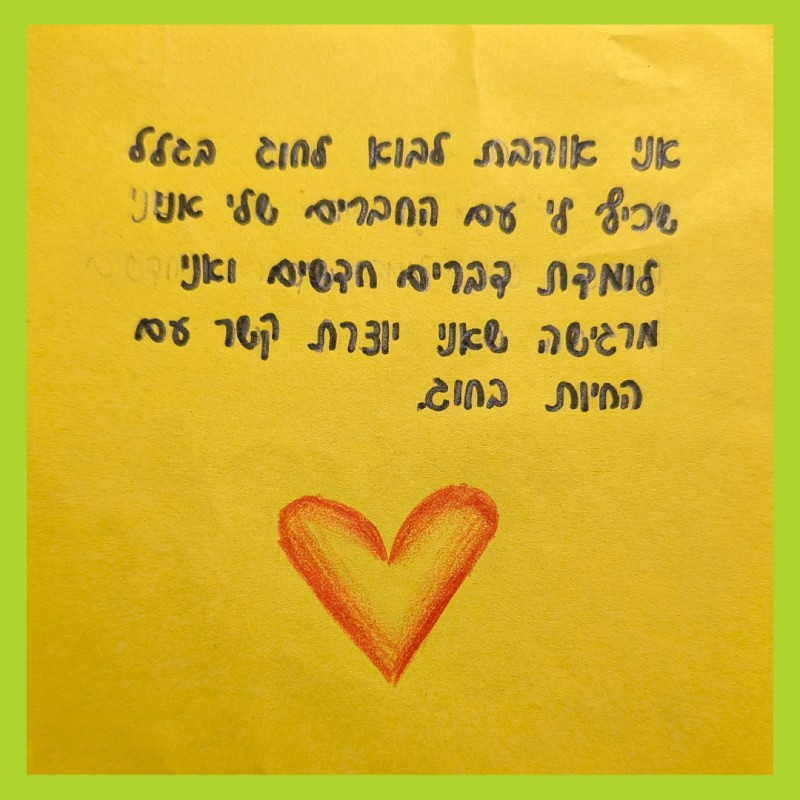 אני אוהבת לבוא לחוג בגלל
שכיף לי עם החברים שלי אני
לומדת דברים חדשים ואני
מרגישה שאני יוצרת קשר עם
החיות בחוג.